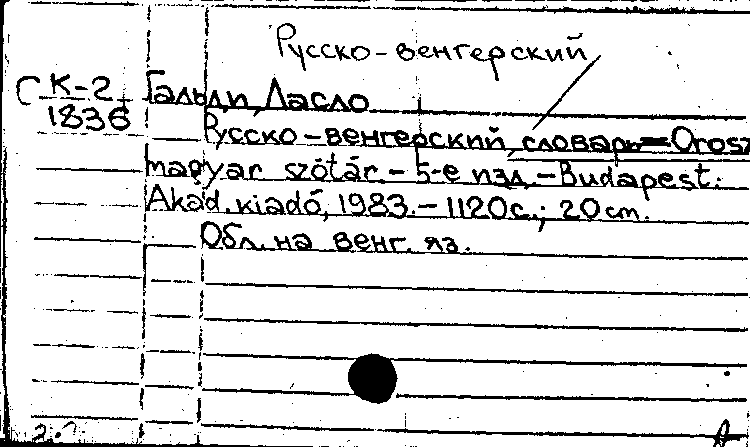 Русско-венгерский
С К-2 Гальди, Ласло
1836
Русско-венгерский словарь=Orosz
magyar szótár.-5-е изд.-Budapest:
Akad. kiadó, 1983.-1120с.; 20 cm.
Обл. на венг. яз.